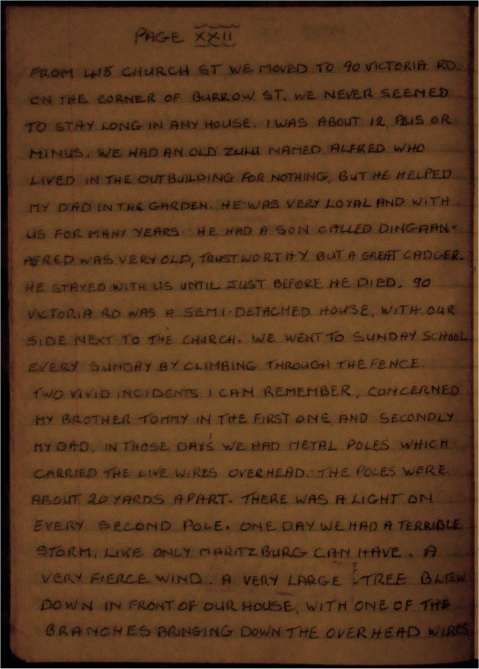 PAGE XXII
FROM 445 CHURCH ST WE MOVED TO 90 VICTORIA RD.
ON THE CORNER OF BURROW ST. WE NEVER SEEMED
TO STAY LONG IN ANY HOUSE. I WAS ABOUT 12, PLUS OR
MINUS. WE HAD AN OLD ZULU NAMED ALFRED WHO
LIVED IN THE OUTBUILDING FOR NOTHING, BUT HE HELPED
MY DAD IN THE GARDEN. HE WAS VERY LOYAL AND WITH
US FOR MANY YEARS. HE HAD A SON CALLED DINGAAN.
AFRED WAS VERY OLD, TRUSTWORTHY BUT A GREAT CADGER.
HE STAYED WITH US UNTIL JUST BEFORE HE DIED. 90
VICTORIA RD WAS A SEMI-DETACHED HOUSE, WITH OUR
SIDE NEXT TO THE CHURCH. WE WENT TO SUNDAY SCHOOL
EVERY SUNDAY BY CLIMBING THROUGH THE FENCE.
TWO VIVID INCIDENTS I CAN REMEMBER, CONCERNED
MY BROTHER TOMMY IN THE FIRST ONE AND SECONDLY
MY DAD. IN THOSE DAYS WE HAD METAL POLES WHICH
CARRIED THE LIVE WIRES OVERHEAD. THE POLES WERE
ABOUT 20 YARDS APART. THERE WAS A LIGHT ON
EVERY SECOND POLE. ONE DAY WE HAD A TERRIBLE
STORM, LIKE ONLY MARITZBURG CAN HAVE. A
VERY FIERCE WIND. A VERY LARGE TREE BLEW
DOWN IN FRONT OF OUR HOUSE, WITH ONE OF THE
BRANCHES BRINGING DOWN THE OVERHEAD WIRES